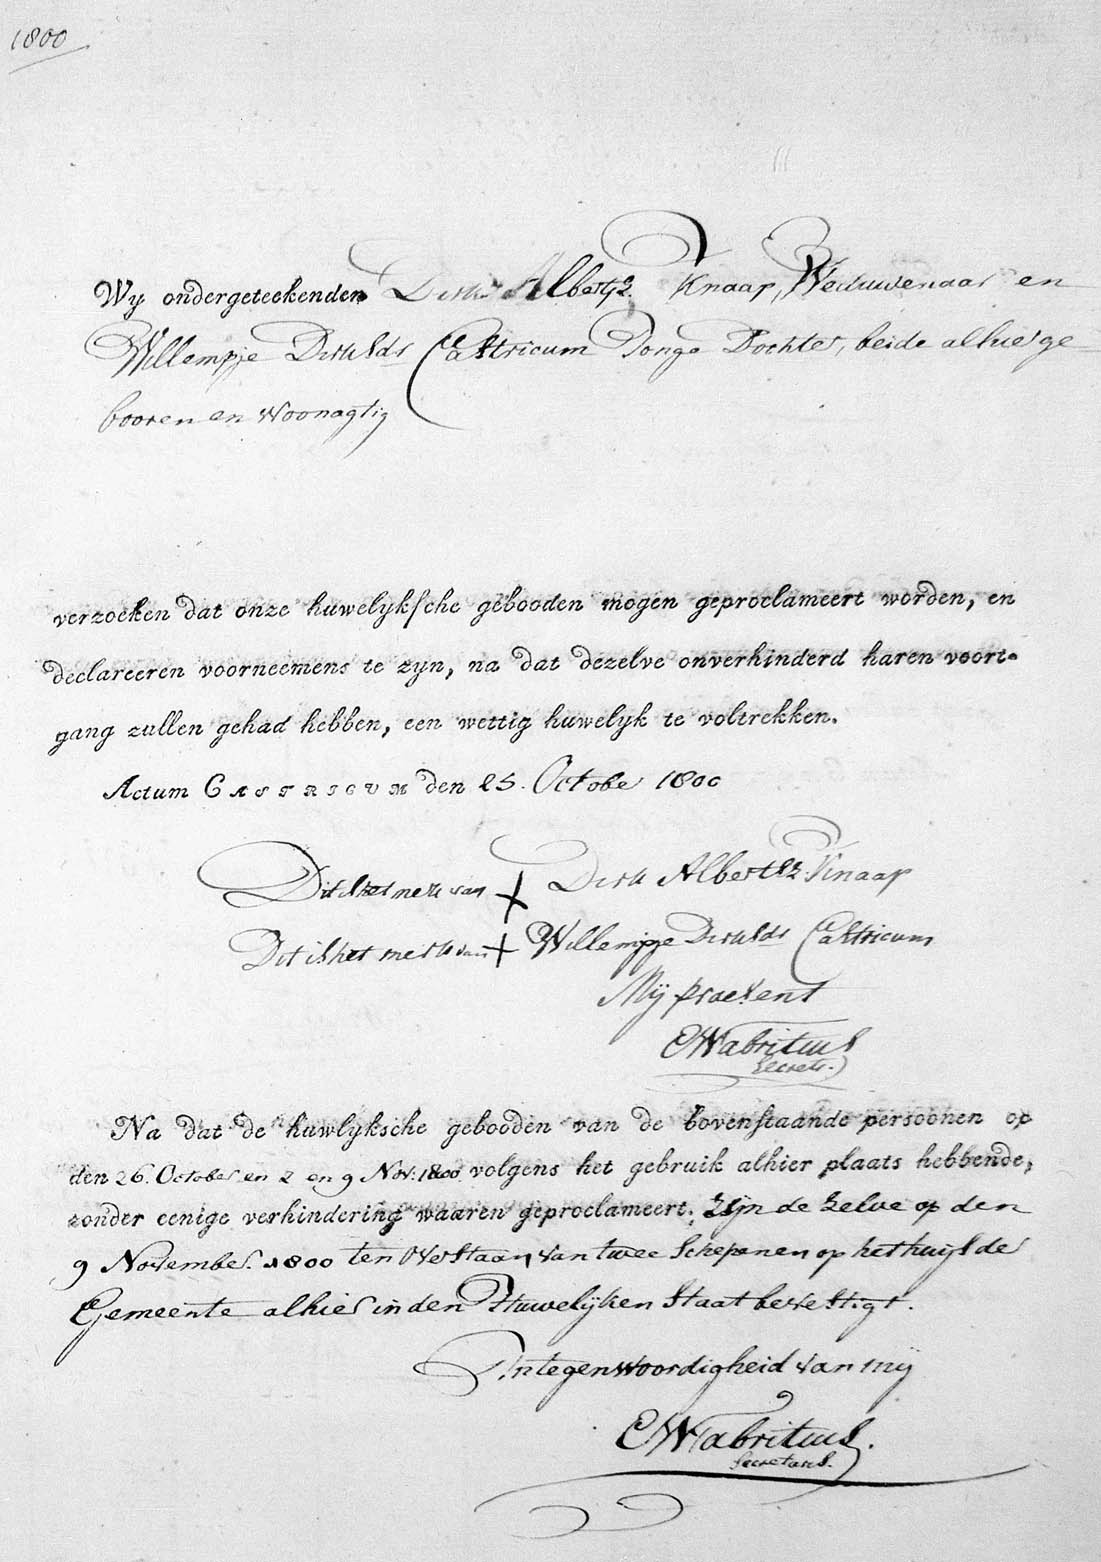 1800
Wy ondergeteekenden Dirk Albertsz. Knaap, Weduwenaar en
Willempje Dirksds Castricum Jonge Dochter, beide alhier ge-
booren en woonagtig
verzoeken dat onze huwelyksche gebooden mogen geproclameert worden, en
declareeren voorneemens te zyn, na dat dezelve onverhinderd haren voort-
gang zullen gehad hebben, een wettig huwelyk te voltrekken.
Actum CASTRICUM den 25. October 1800
Dit is het merk van X Dirk Albertsz. Knaap
Dit is het merk van X Willempje Dirksds Castricum
Mij præsent
CWFabritius
Secrets.
Na dat de huwlyksche gebooden van de bovenstaande persoonen op
den 26. October en 2 en 9 Nov. 1800 volgens het gebruik alhier plaats hebbende,
zonder eenige verhindering waaren geproclameert. Zijn de zelve op den
9 November 1800 ten Overstaan van twee Schepenen op het huijs der
Gemeente alhier in den Huwelijken Staat bevestigt.
In tegenwoordigheid van mij
CWFabritius.
Secretaris.